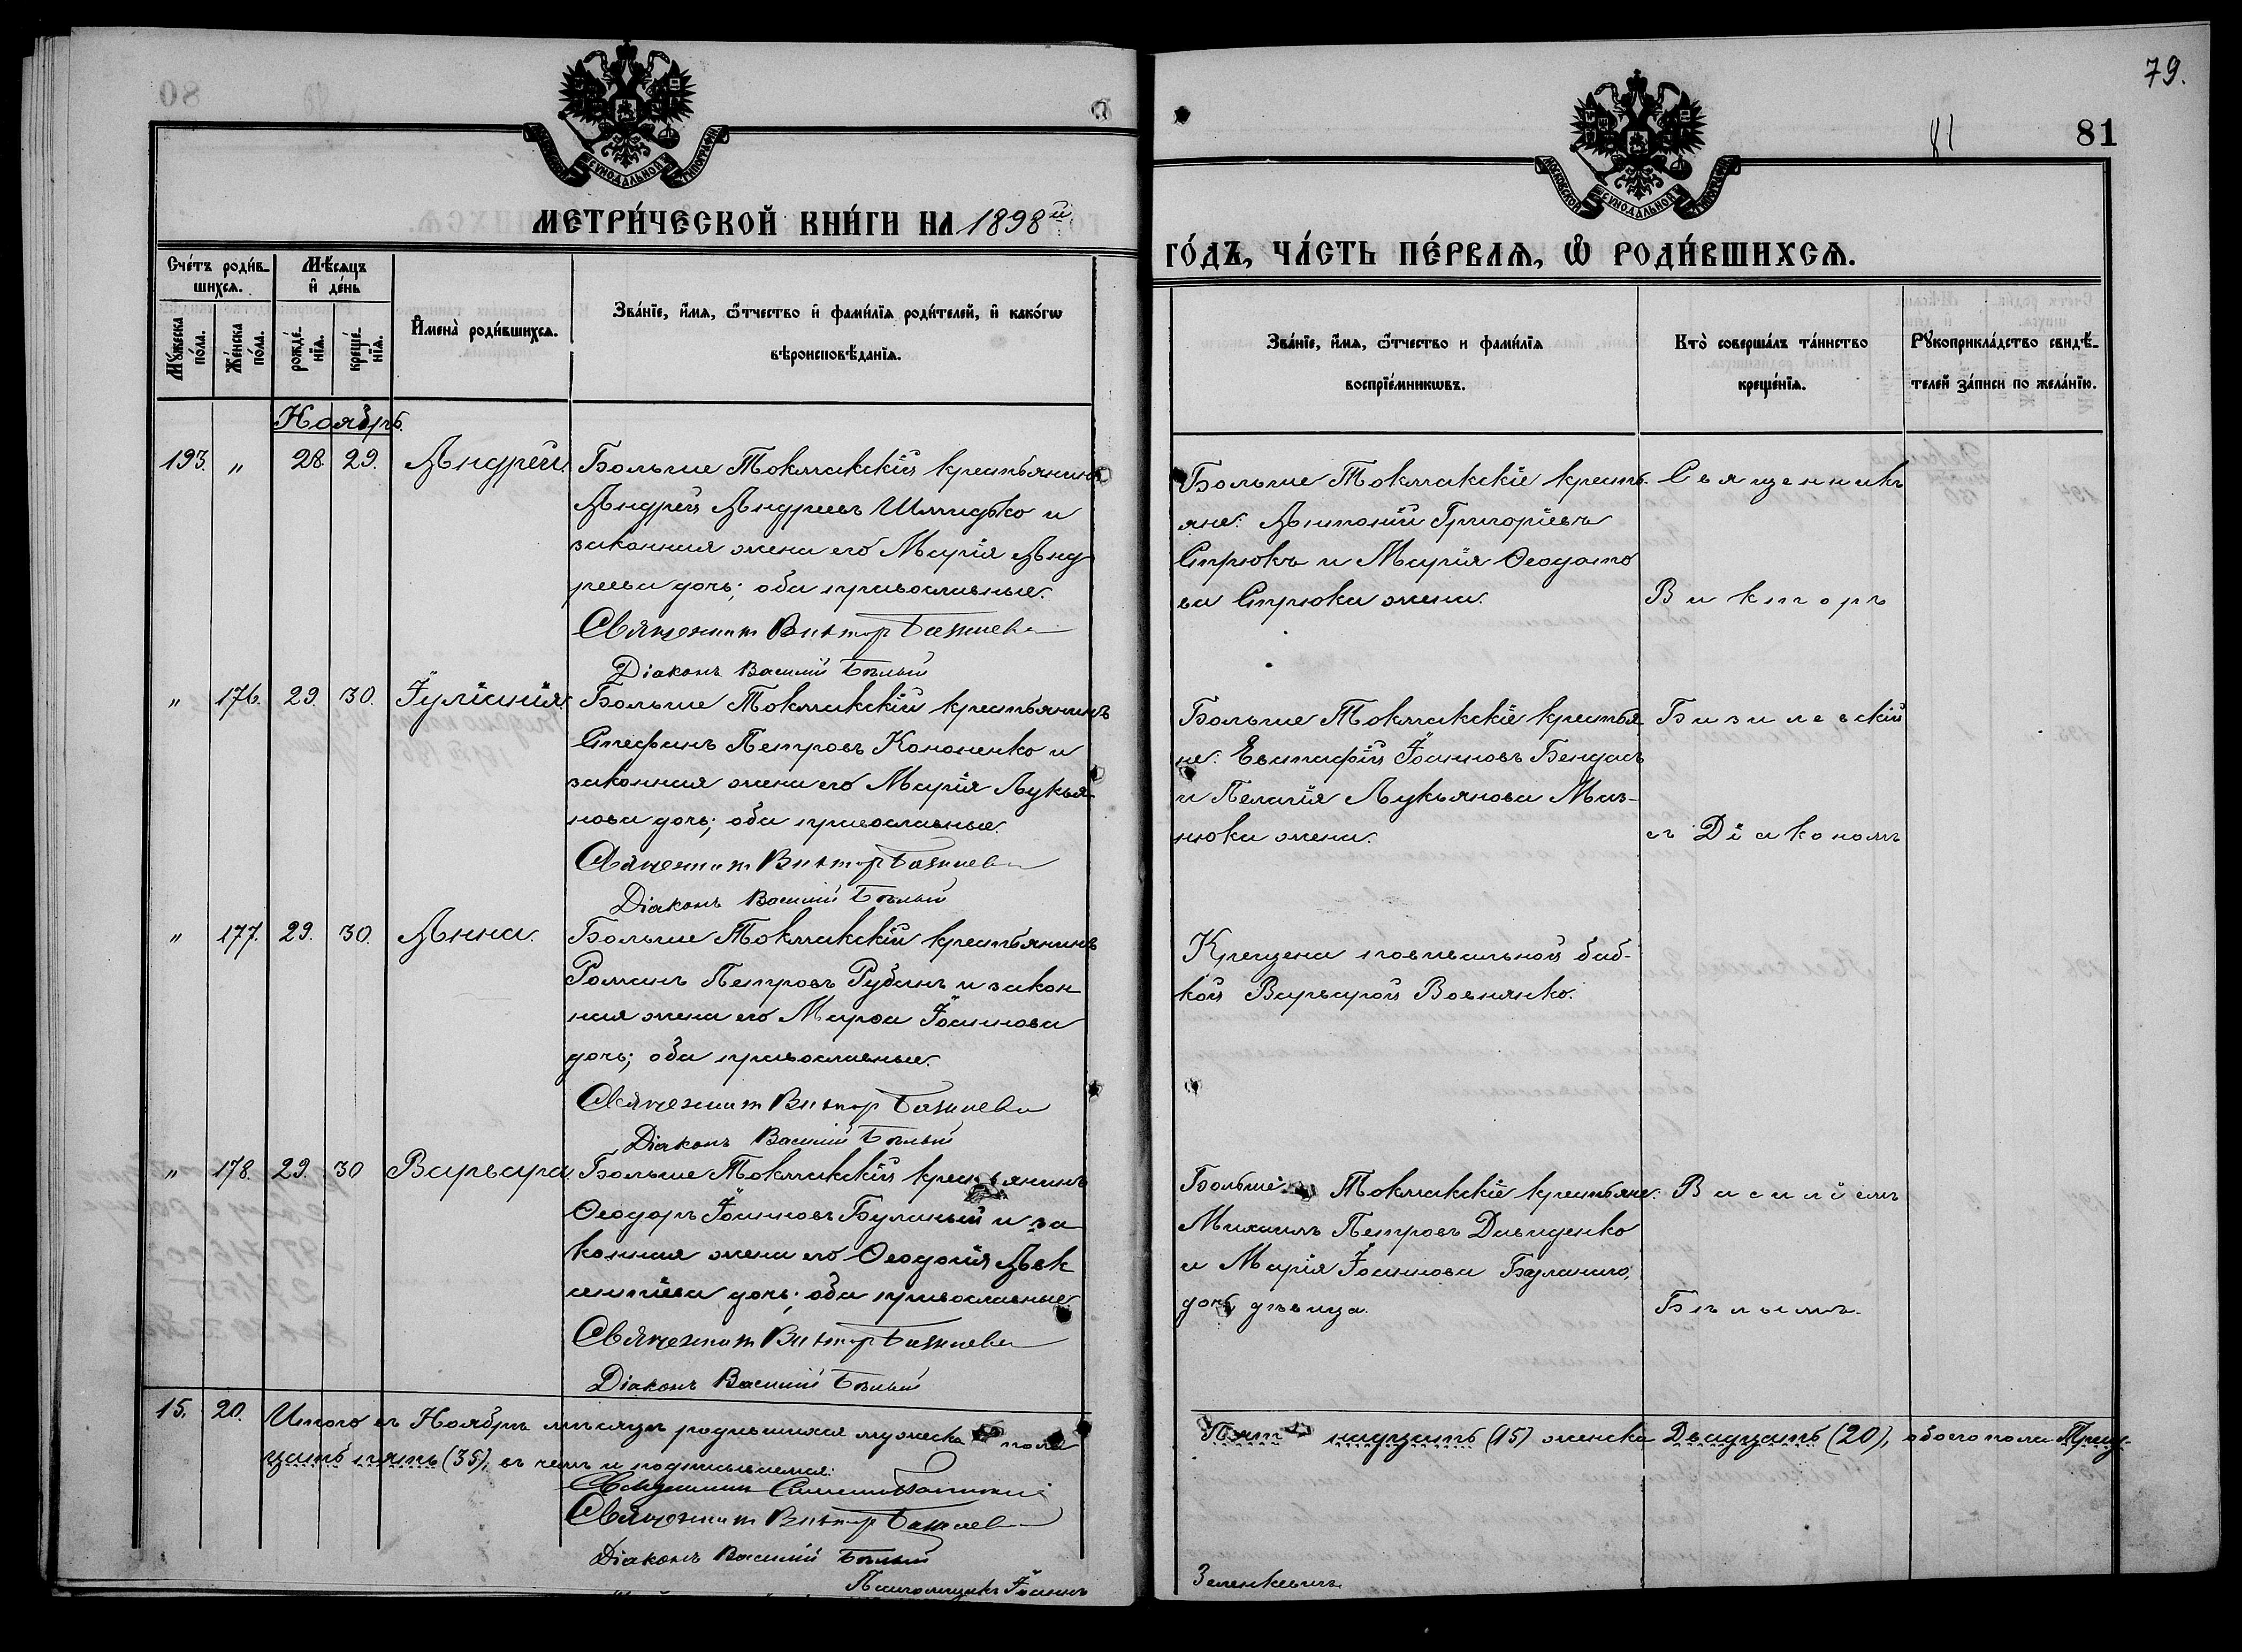 79.
80
81
81
МЕТРИ́ЧЕСКОЙ КНИ́ГИ НА 1898й
ГО́ДЪ, ЧА́СТЬ ПЕ́РВАѦ, Ѽ РОДИ́ВШИХСѦ.
МОСКОВСКОЙ СѴНОДАЛЬНОЙ ТИПОГРАФІИ
МОСКОВСКОЙ СѴНОДАЛЬНОЙ ТИПОГРАФІИ
Сче́тъ роди́в-
шихсѧ.
Мꙋ́жеска по́ла.
Же́нска по́ла.
Мѣ́сѧцъ
и҆ де́нь
рожде́нїѧ.
креще́нїѧ.
И҆мена̀ роди́вшихсѧ.
Зва́нїе, и҆́мѧ, ѻ҆́тчество и҆ фами́лїѧ роди́телей, и҆ како́гѡ
вѣроисповѣ́данїѧ.
Зва́нїе, и҆́мѧ, ѻ҆́тчество и фами́лїѧ
воспрїе́мникѡвъ.
Кто̀ соверша́лъ та́инство
креще́нїѧ.
Рꙋкоприкла́дство свидѣ́-
телей за́писи по жела́нїю.
Ноябрь.
193. " 28. 29. Андрей.
Больше Токмакскій крестьянинъ
Андрей Андреевъ Шмидько и
законная жена его Марія Анд
реева дочь; оба православные.
Священник Виктор Базилевс
Діаконъ Василій Бѣлый
Больше Токмакскіе кресть
яне: Антоній Григоріевъ
Стрюкъ и Марія Ѳеодото
ва Стрюка жена.
Священникъ
Викторъ
" 176. 29. 30. Іуліанія.
Больше Токмакскій крестьянинъ
Стефанъ Петровъ Кононенко и
законная жена его Марія Лукья
нова дочь; оба православные.
Священник Виктор Базилевс
Діаконъ Василій Бѣлый
Больше Токмакскіе крестья
не: Евстафій Іоанновъ Бендасъ
и Пелагія Лукьянова Маз-
нюка жена.
Базилевскій
съ Діакономъ
" 177. 29. 30. Анна.
Больше Токмакскій крестьянинъ
Романъ Петровъ Рубанъ и закон
ная жена его Мароа Іоаннова
дочь; оба православные.
Священник Виктор Базилевс
Діаконъ Василій Бѣлый
Крещена повивальной баб-
кой Варварой Вовнянко.
" 178. 29. 30 Варвара.
Больше Токмакскій крестьянинъ
Ѳеодоръ Іоанновъ Буланый и за
конная жена его Ѳеодосія Авк
сентіева дочь; оба православные.
Священник Виктор Базилевс
Діаконъ Василій Бѣлый
Больше Токмакскіе крестьяне:
Михаилъ Петровъ Давиденко
и Марія Іоаннова Буланаго,
дочь дѣвица.
Василіемъ
Бѣлымъ.
15. 20. Итого въ Ноябрѣ мѣсяцѣ родившихся мужеска пола
Пятнадцать (15) женска Двадцать (20), обоего пола Трид-
цать пять (35), въ чемъ и подписываемся:
Священник
Священник Виктор Базилевс
Діаконъ Василій Бѣлый
Псаломщикъ Іоаннъ
Зеленкевичъ